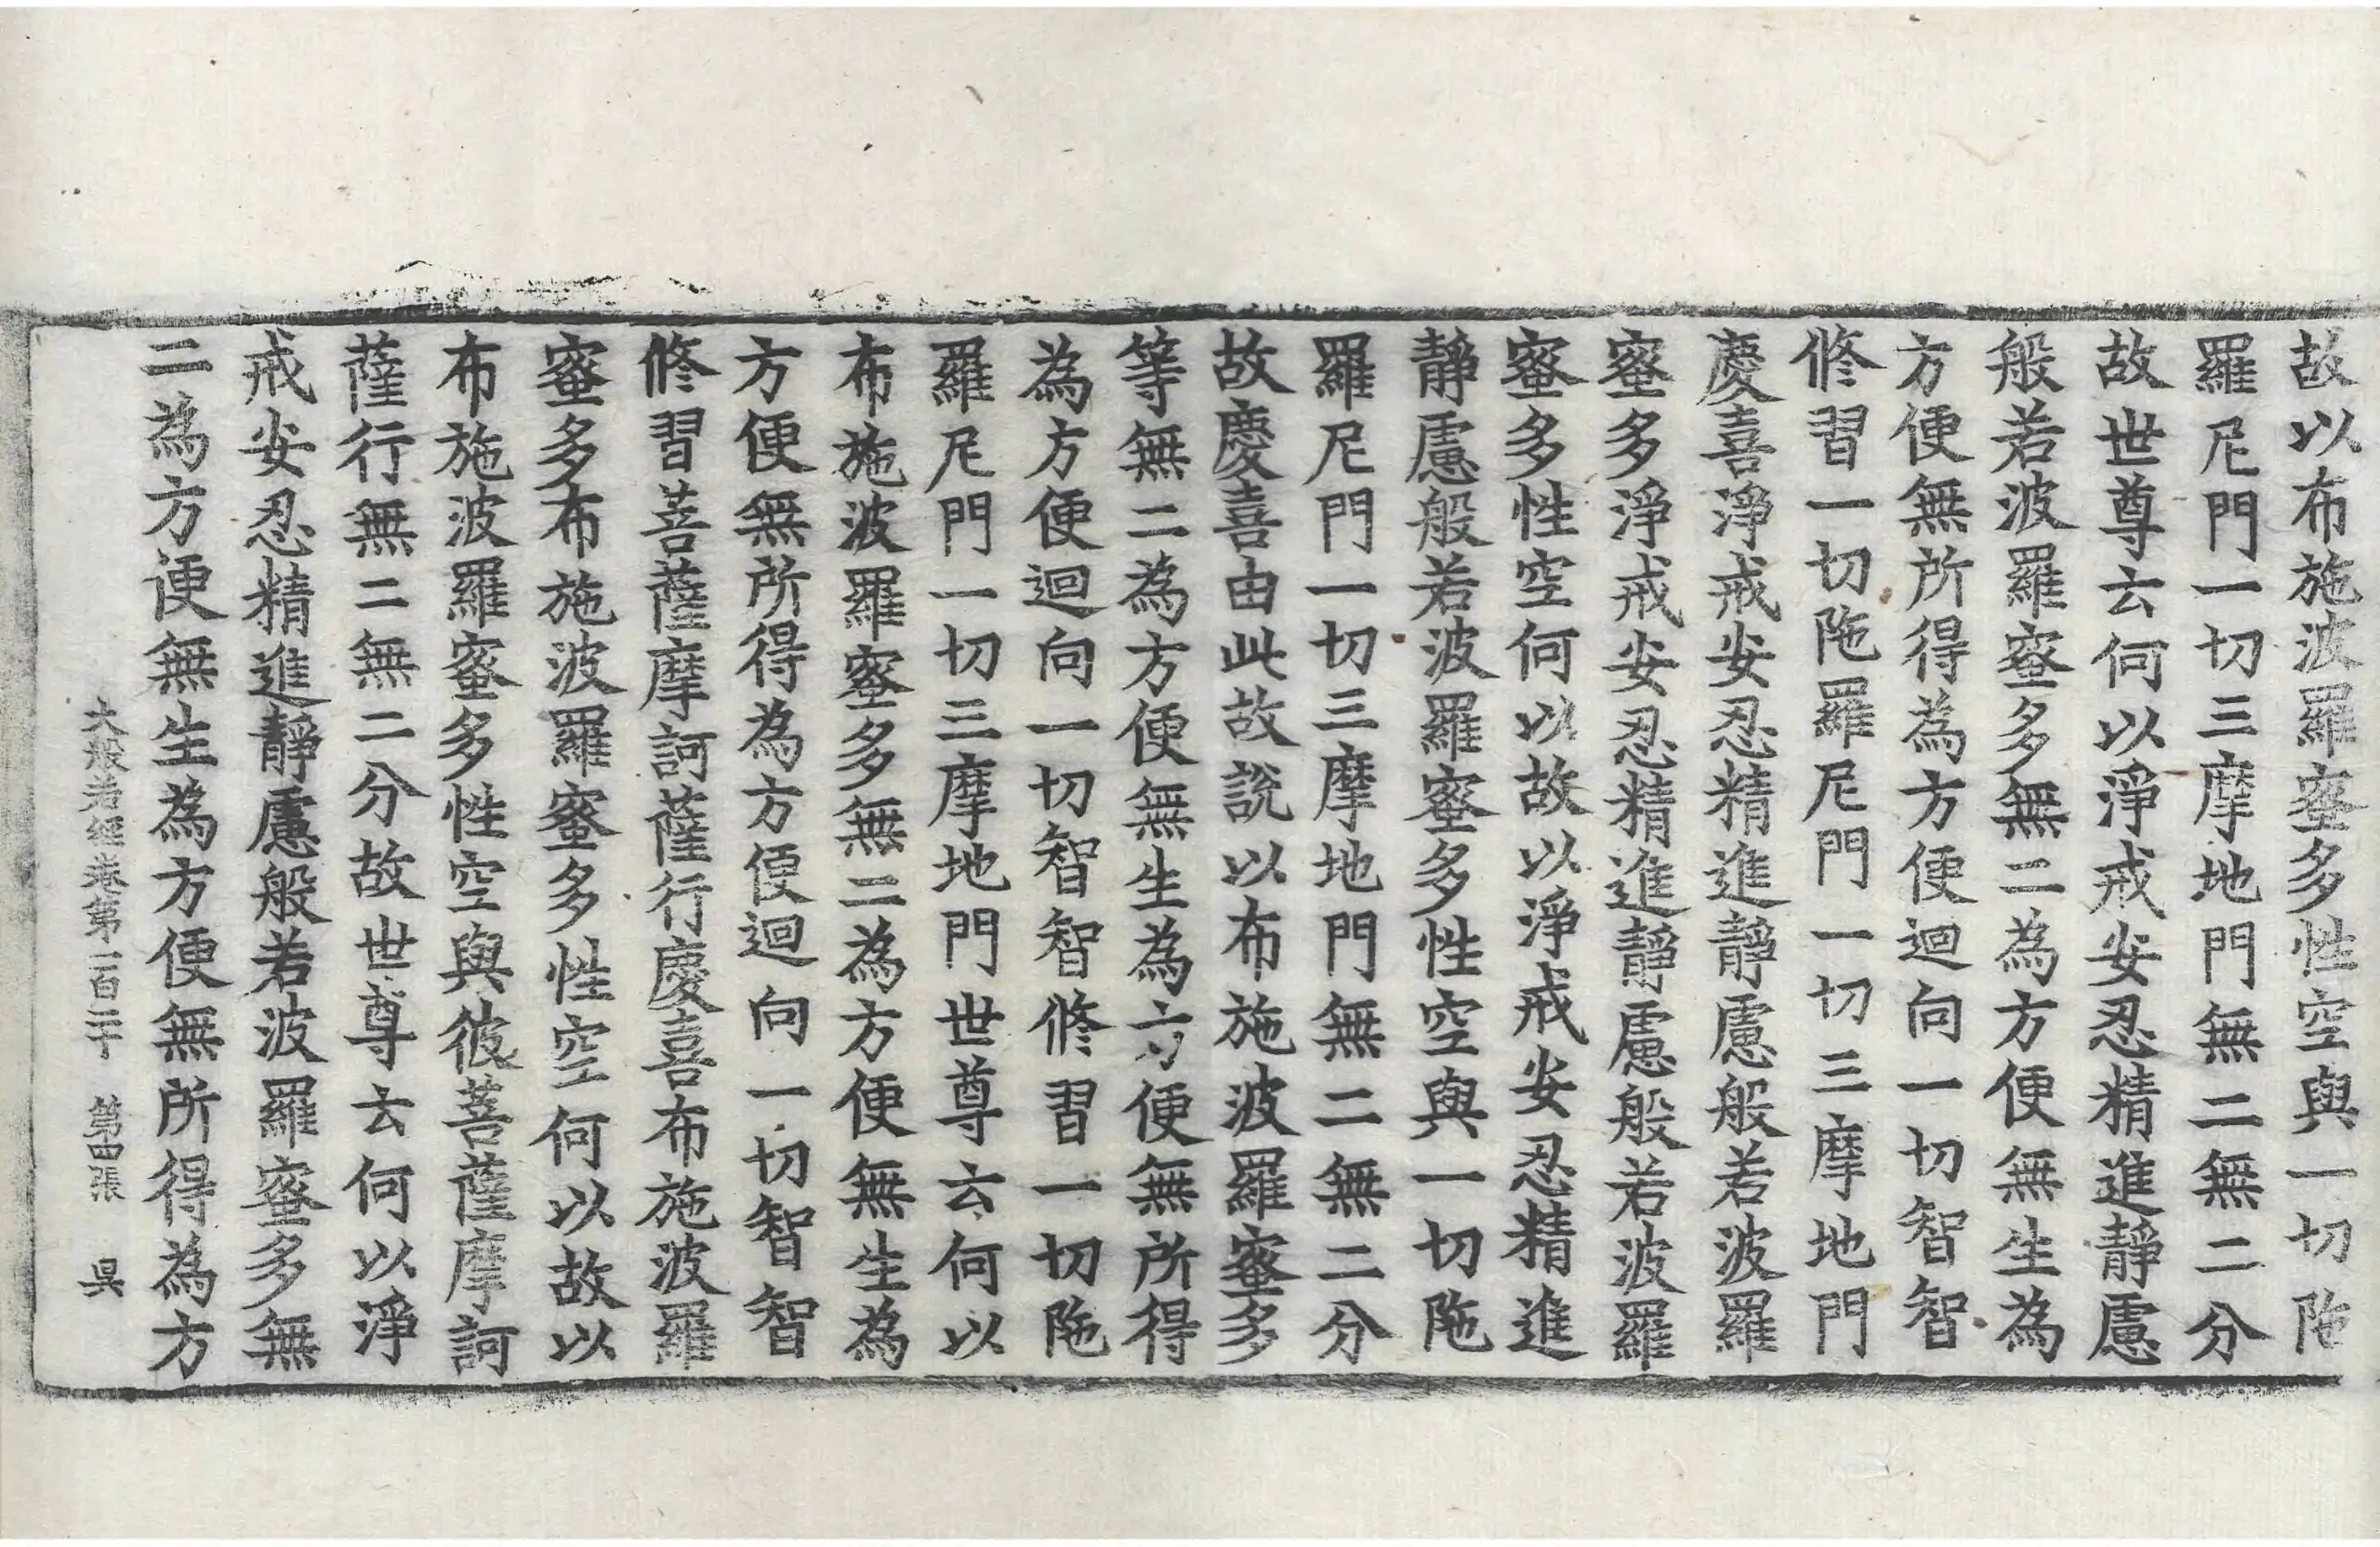 故以布施波羅蜜多性空與一切陁
羅尼門一切三摩地門無二無二分
故世尊云何以淨戒安忍精進靜慮
般若波羅蜜多無二為方便無生為
方便無所得為方便迴向一切智智
修習一切陁羅尼門一切三摩地門
慶喜淨戒安忍精進靜慮般若波羅
蜜多淨戒安忍精進靜慮般若波羅
蜜多性空何以故以淨戒安忍精進
靜慮般若波羅蜜多性空與一切陁
羅尼門一切三摩地門無二無二分
故慶喜由此故說以布施波羅蜜多
等無二為方便無生為方便無所得
為方便迴向一切智智修習一切陁
羅尼門一切三摩地門世尊云何以
布施波羅蜜多無二為方便無生為
方便無所得為方便迴向一切智智
修習菩薩摩訶薩行慶喜布施波羅
蜜多布施波羅蜜多性空何以故以
布施波羅蜜多性空與彼菩薩摩訶
薩行無二無二分故世尊云何以淨
戒安忍精進靜慮般若波羅蜜多無
二為方便無生為方便無所得為方
大般若經卷第一百二十 第四張 昃